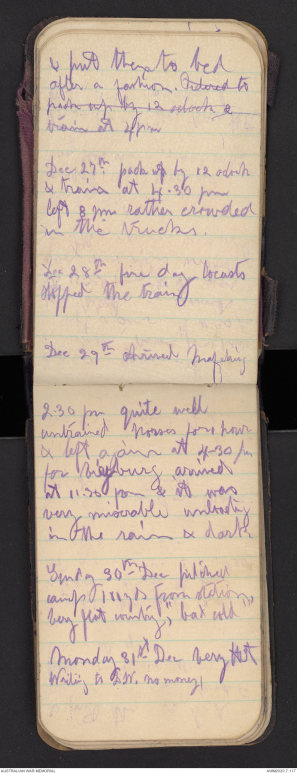 & put them to bed
after a fashion. Ordered to
pack up by 12 oclock &
train at 4pm
Dec 27th pack up by 12 oclock
& train at 4.30 pm
left 8 pm rather crowded
in the trucks.
Dec 28th fine day locusts
stopped the train
Dec 29th Arrived Mafeking
2.30 pm quite well
untrained horses for 1 hour
& left again at 4.30 pm
for Vryburg arrived
at 11.30 pm & it was
very miserable unloading
in the rain & dark
Sunday 30th Dec pitched
camp yds from station,
very flat country,
Monday 31st Dec very Hot
no money
AUSTRALIAN WAR MEMORIAL